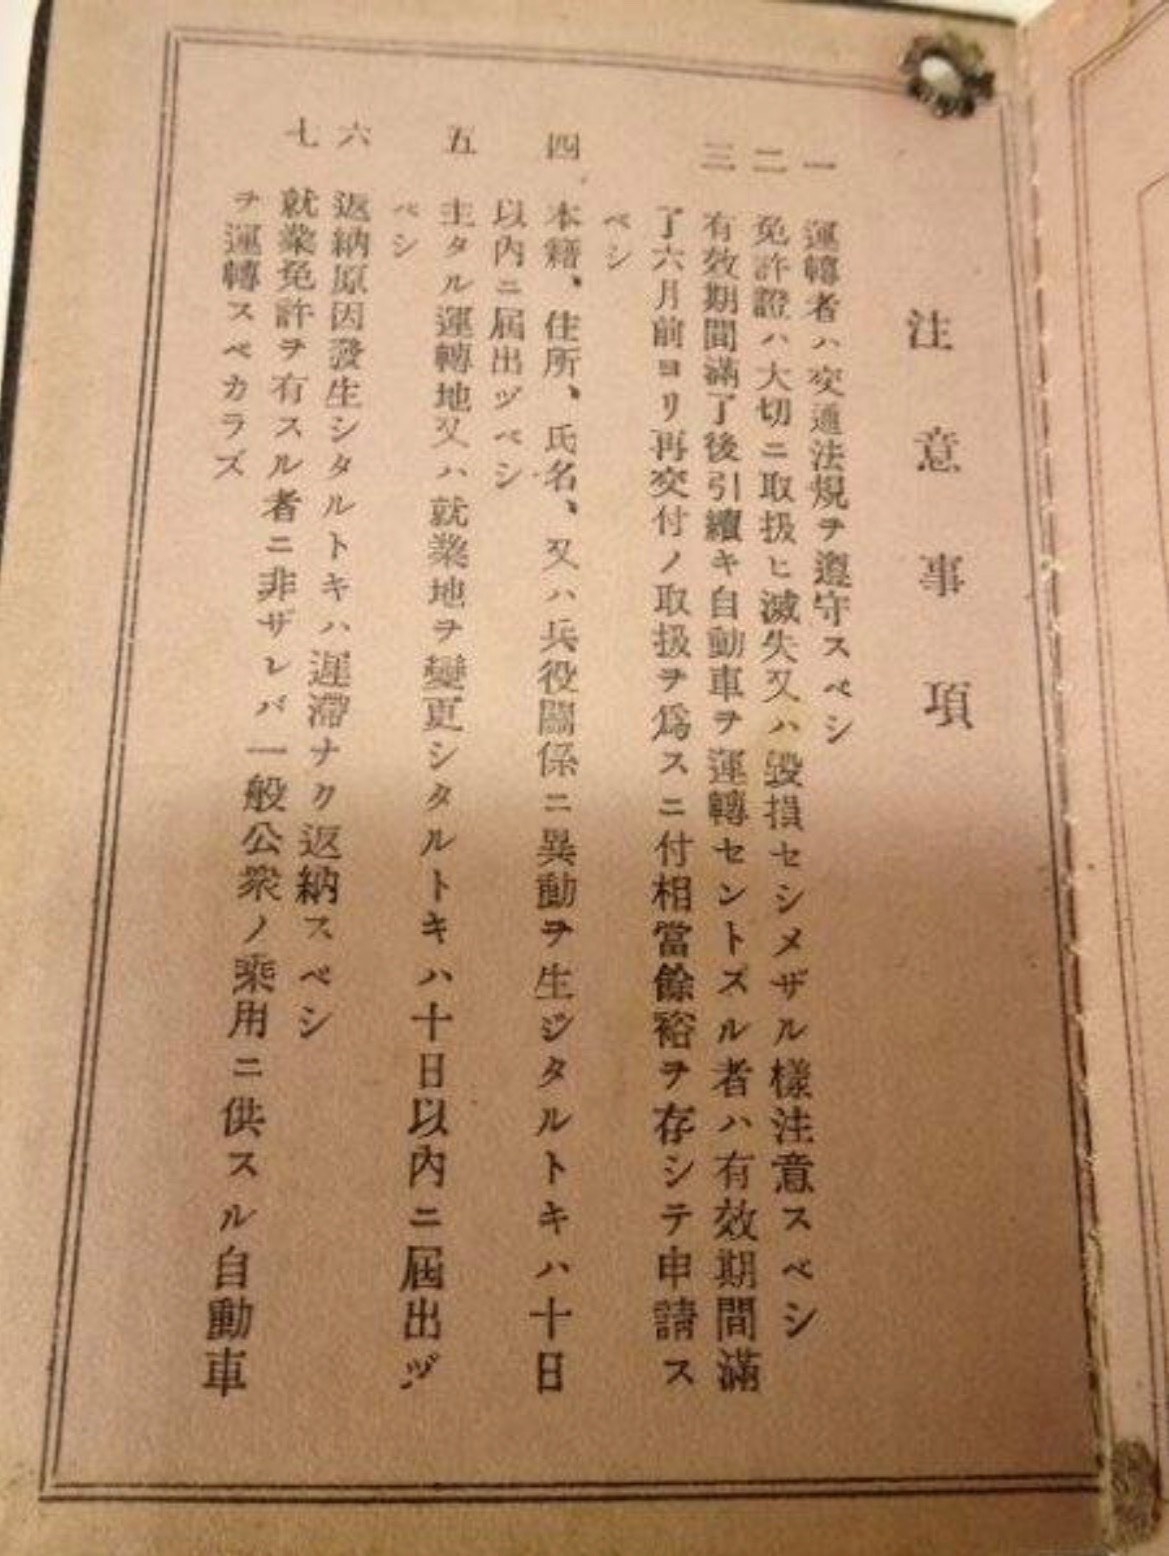 注意事項
一 運轉者ハ交通法規ヲ遵守スベシ
二 免許證ハ大切ニ取扱ヒ滅失又ハ毀損セシメザル樣注意スベシ
三 有效期間滿了後引續キ自動車ヲ運轉セントスル者ハ有效期間滿
了六月前ヨリ再交付ノ取扱ヲ爲スニ付相當餘裕ヲ存シテ申請ス
ベシ
四 本籍、住所、氏名、又ハ兵役關係ニ異動ヲ生ジタルトキハ十日
以內ニ屆出ヅベシ
五 主タル運轉地又ハ就業地ヲ變更シタルトキハ十日以內ニ屆出ヅ
ベシ
六 返納原因發生シタルトキハ遲滯ナク返納スベシ
七 就業免許ヲ有スル者ニ非ザレバ一般公衆ノ乘用ニ供スル自動車
ヲ運轉スベカラズ